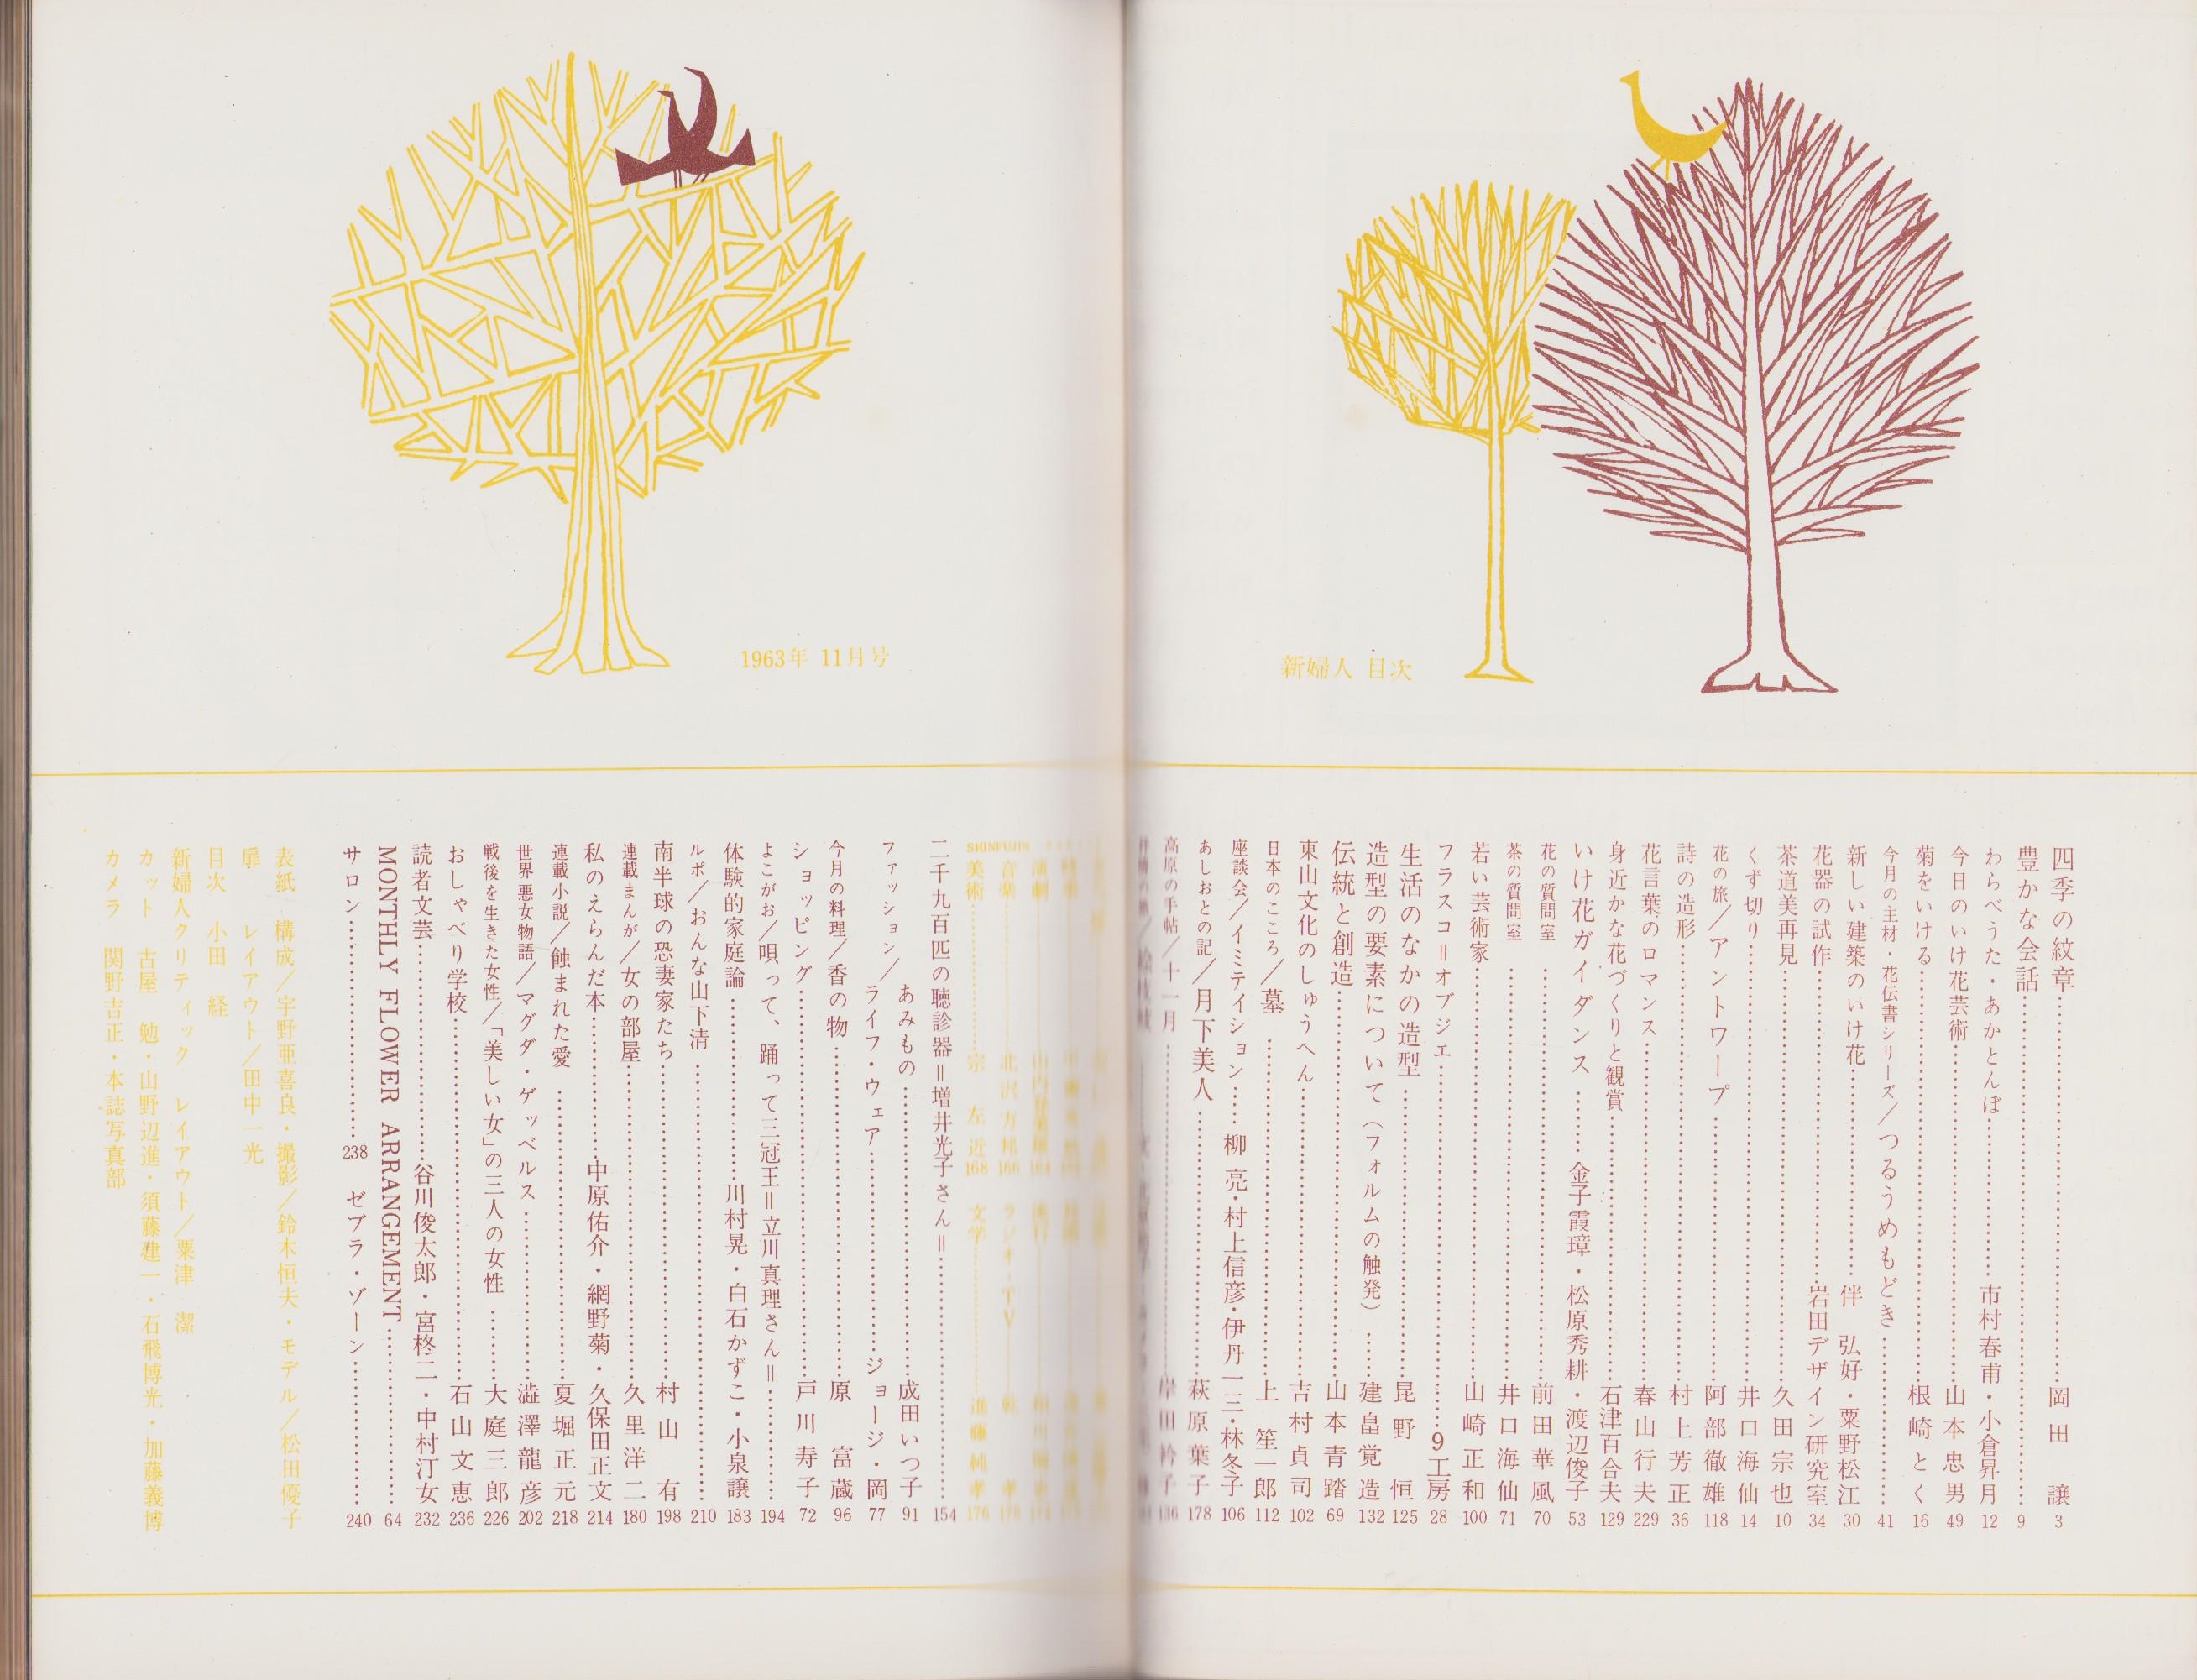 新婦人 目次
1963年 11月号
四季の紋章……岡田 譲 3
豊かな会話……9
わらべうた・あかとんぼ……市村春甫・小倉昇月 12
今日のいけ花芸術……山本忠男 49
菊をいける……根崎とく 16
今月の主材・花伝書シリーズ/つるうめもどき……41
新しい建築のいけ花……伴 弘好・粟野松江 30
花器の試作……岩田デザイン研究室 34
茶道美再見……久田宗也 10
くず切り……井口海仙 14
花の旅/アントワープ……阿部徹雄 118
詩の造形……村上芳正 36
花言葉のロマンス……春山行夫 229
身近かな花づくりと観賞……石津百合夫 129
いけ花ガイダンス……金子霞璋・松原秀耕・渡辺俊子 53
花の質問室……前田華風 70
茶の質問室……井口海仙 71
若い芸術家……山崎正和 100
フラスコ=オブジエ……9工房 28
生活のなかの造型……昆野 恒 125
造型の要素について(フォルムの触発)……建畠覚造 132
伝統と創造……山本青踏 69
東山文化のしゅうへん……吉村貞司 102
日本のこころ/墓……上 笙一郎 112
座談会/イミテイション……柳 亮・村上信彦・伊丹一三・林冬子 106
あしおとの記/月下美人……萩原葉子 178
高原の手帖/十一月……岸田衿子 136
SHINFUJIN
音楽……北沢方邦 166
美術……宗 左近 168 文学……進藤純孝 176
二千九百匹の聴診器=増井光子さん=……154
あみもの……成田いつ子 91
ファッション/ライフ・ウェア……ジョージ・岡 77
今月の料理/香の物……原 富蔵 96
ショッピング……戸川寿子 72
よこがお/唄って、踊って三冠王=立川真理さん=……194
体験的家庭論……川村晃・白石かずこ・小泉譲 183
ルポ/おんな山下清……210
南半球の恐妻家たち……村山 有 198
連載まんが/女の部屋……久里洋二 180
私のえらんだ本……中原佑介・網野菊・久保田正文 214
連載小説/蝕まれた愛……夏堀正元 218
世界悪女物語/マグダ・ゲッベルス……澁澤龍彦 202
戦後を生きた女性/「美しい女」の三人の女性……大庭三郎 226
おしゃべり学校……石山文恵 236
読者文芸……谷川俊太郎・宮柊二・中村汀女 232
MONTHLY FLOWER ARRANGEMENT……64
サロン……238 ゼブラ・ゾーン……240
表紙 構成/宇野亜喜良・撮影/鈴木恒夫・モデル/松田優子
扉 レイアウト/田中一光
目次 小田 経
新婦人クリティック レイアウト/粟津 潔
カット 古屋 勉・山野辺進・須藤建一・石飛博光・加藤義博
カメラ 関野吉正・本誌写真部